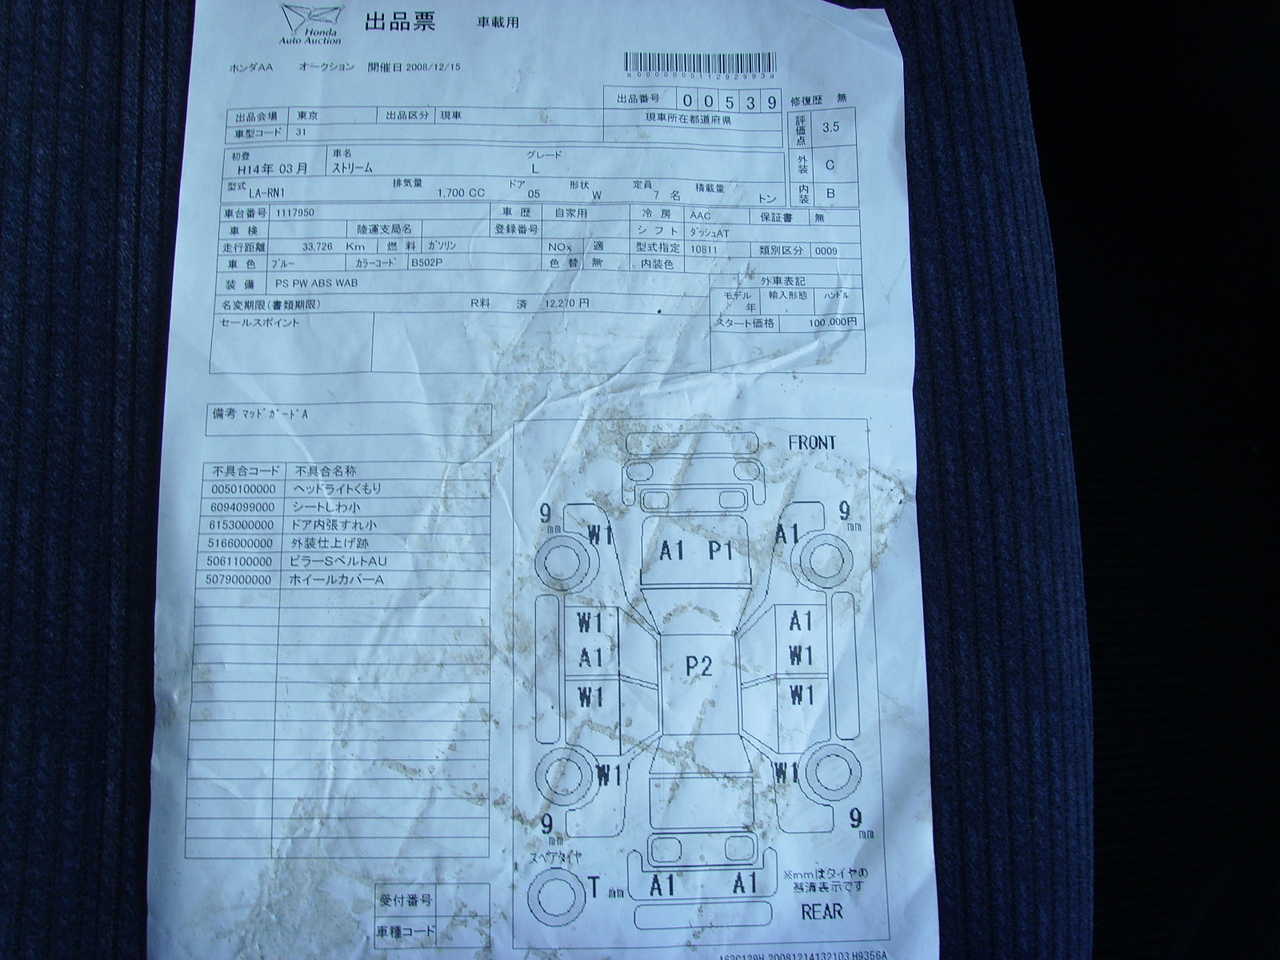 Honda
Auto Auction
出品票 車載用
ホンダAA オークション 開催日 2008/12/15
出品番号 00539
修復歴 無
出品会場 東京 出品区分 現車 現車所在都道府県
評価点 3.5
車型コード 31
初登 H14年 03月 車名 ストリーム グレード L
外装 C
型式 LA-RN1 排気量 1,700 CC ドア 05 形状 W 定員 7 名 積載量 トン
内装 B
車台番号 1117950 車歴 自家用 冷房 AAC 保証書 無
車検 陸運支局名 登録番号 シフト ダッシュAT
走行距離 33,726 Km 燃料 ガソリン NOx 適 型式指定 10811 類別区分 0009
車色 ブルー カラーコード B502P 色替 無 内装色
装備 PS PW ABS WAB
外車表記
名変期限(書類期限) R料 済 12,270円
モデル年 輸入形態 ハンドル
セールスポイント
スタート価格 100,000円
備考 マッドガードA
不具合コード 不具合名称
0050100000 ヘッドライトくもり
6094099000 シートしわ小
6153000000 ドア内張すれ小
5166000000 外装仕上げ跡
5061100000 ピラーSベルトAU
5079000000 ホイールカバーA
FRONT
9 mm 9 mm
W1 A1 P1 A1
W1 A1
A1 P2 W1
W1 W1
W1 W1
9 mm 9 mm
スペアタイヤ
T mm A1 A1
※mmはタイヤの
基溝表示です
REAR
受付番号
車種コード